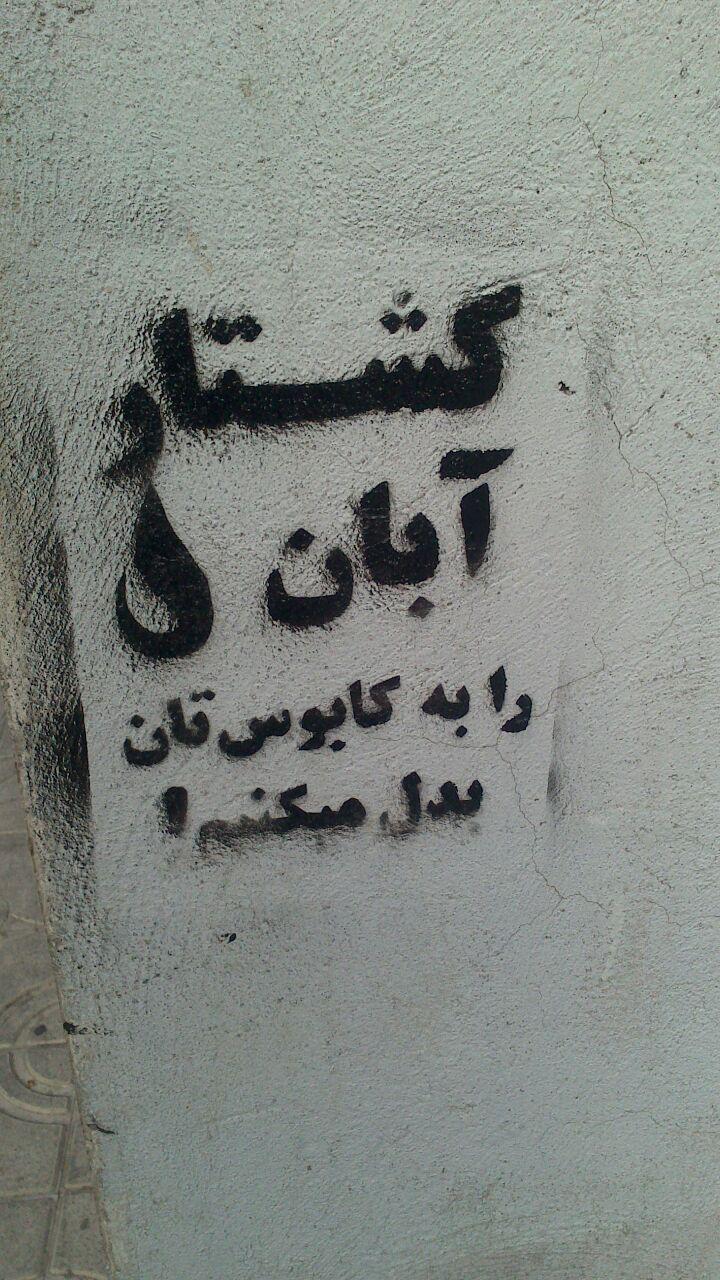 کشتار
آبان
را به کابوس‌تان
بدل میکنیم!